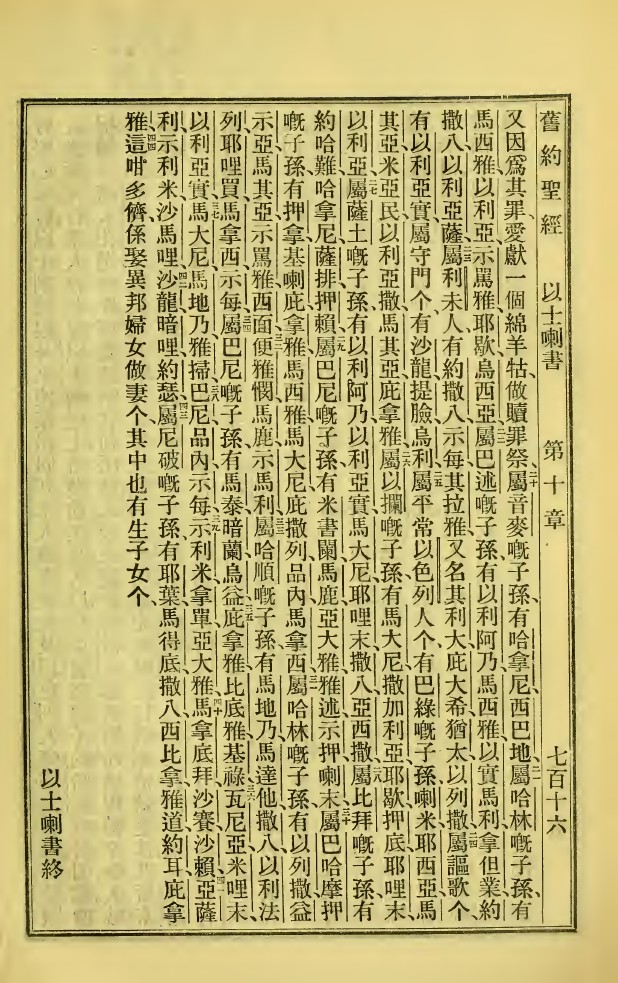 舊約聖經 以士喇書 第十章 七百十六
又因爲其罪愛獻一個綿羊牯做贖罪祭、二十屬音麥嘅子孫有哈拿尼西巴地、二一屬哈林嘅子孫有
馬西雅以利亞示罵雅、耶歇烏西亞、二二屬巴述嘅子孫、有以利阿乃馬西雅以實馬利拿但業約
撒八以利亞薩、二三屬利未人有約撒八示每其拉雅又名其利大庇大希猶太以列撒、二四屬謳歌个、
有以利亞實、屬守門个、有沙龍提臉烏利、二五屬平常以色列人个、有巴綠嘅子孫、喇米耶西亞馬
其亞米亞民以利亞撒馬其亞庇拿雅、二六屬以攔嘅子孫、有馬大尼撒加利亞耶歇押底耶哩末
以利亞、二七屬薩土嘅子孫、有以利阿乃以利亞實馬大尼耶哩末撒八亞西撒、二八屬比拜嘅子孫、有
約哈難哈拿尼薩排押賴、二九屬巴尼嘅子孫、有米書闌馬鹿亞大雅雅述示押喇末、三十屬巴哈摩押
嘅子孫、有押拿基喇庇拿雅馬西雅馬大尼庇撒列品內馬拿西、三一屬哈林嘅子孫、有以列撒益
示亞馬其亞示罵雅西面、三二便雅憫馬鹿示馬利、三三屬哈順嘅子孫、有馬地乃馬達他撒八以利法
列耶哩買馬拿西示每、三四屬巴尼嘅子孫、有馬泰暗蘭烏益、三五庇拿雅比底雅基祿、三六瓦尼亞米哩末
以利亞實、三七馬大尼馬地乃雅掃、三八巴尼品內示每、三九示利米拿單亞大雅、四十馬拿底拜沙賽沙賴、四一亞薩
利示利米沙馬哩、四二沙龍暗哩約瑟、四三屬尼破嘅子孫、有耶葉馬得底撒八西比拿雅道約耳庇拿
雅、四四這咁多儕係娶異邦婦女做妻个、其中也有生子女个、
以士喇書終